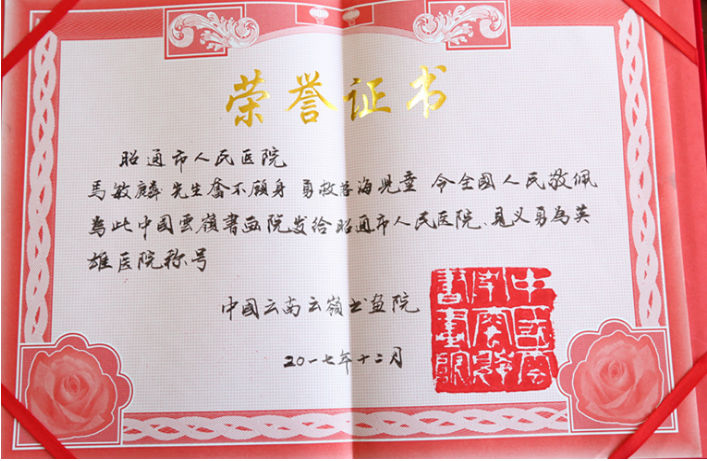 荣誉证书
昭通市人民医院
馬敏麟先生奮不顧身 勇救苦海児童 令全國人民敬佩
為此中國雲嶺書画院发给昭通市人民医院、見义勇為英
雄医院称号
中國云南云嶺书畫院
二〇一七年十二月